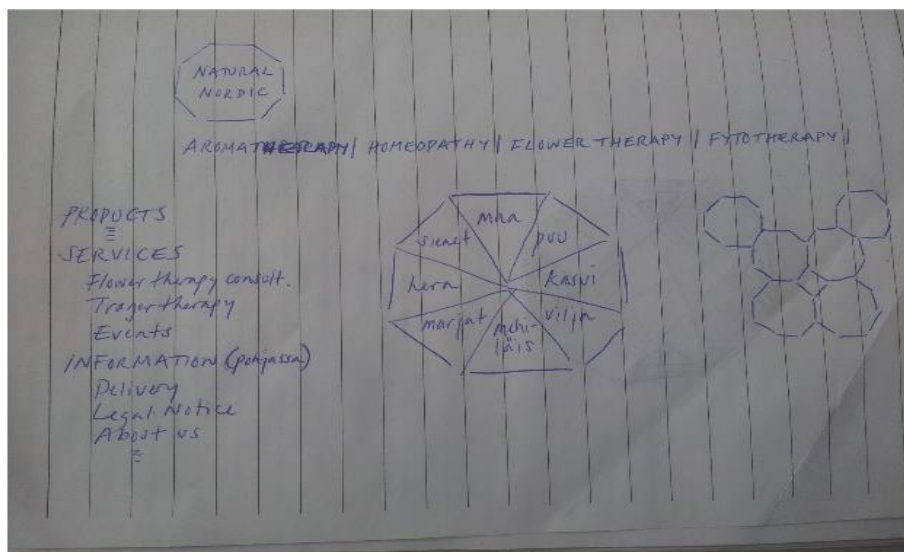 NATURAL
NORDIC
AROMATHERAPY | HOMEOPATHY | FLOWER THERAPY | FYTOTHERAPY |
PRODUCTS
SERVICES
Flower therapy consult.
Trager therapy
Events
INFORMATION (pohjassa)
Delivery
Legal Notice
About us
maa
puu
kasvi
vilja
mehi-
läis
marjat
hera
sienet